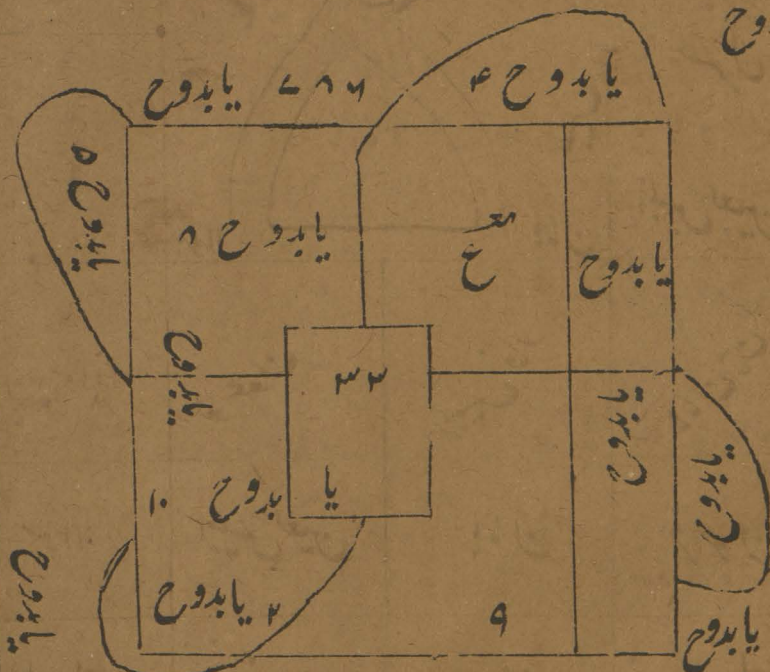 یابدوح ۷۸۶ یابدوح ۴
یابدوح ۵
یابدوح ۸
ع
یابدوح
یابدوح
۳۳
یابدوح
یابدوح
یا بدوح ۱۰
یابدوح ۲
۹
یابدوح
یابدوح